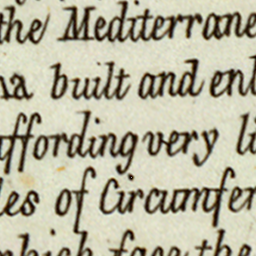 the Mediterrane
na built and enl
affording very li
les of Circumfer
which face the